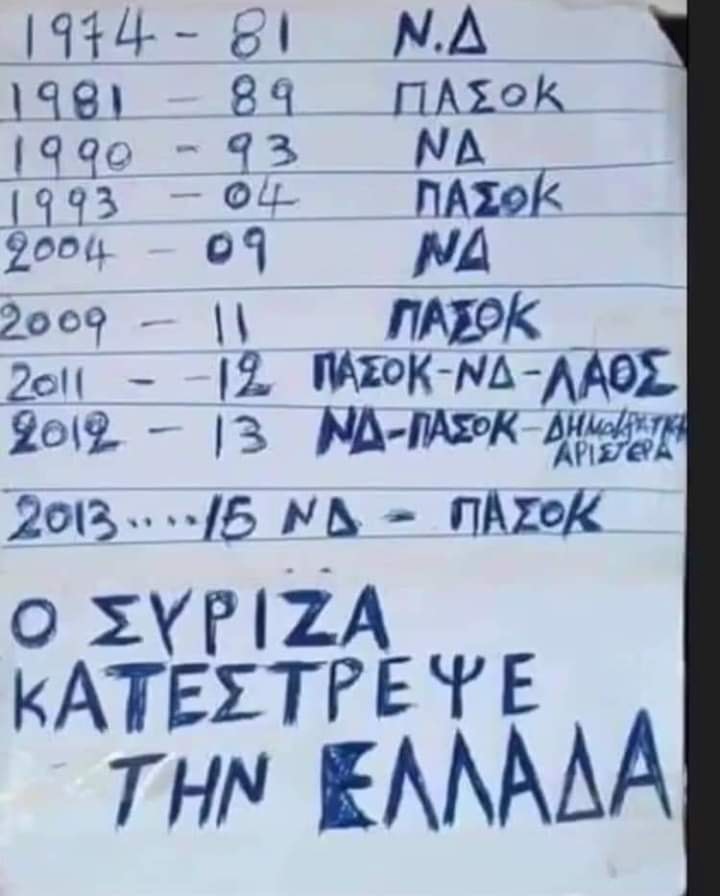 1974 - 81 Ν.Δ
1981 - 89 ΠΑΣΟΚ
1990 - 93 ΝΔ
1993 - 04 ΠΑΣΟΚ
2004 - 09 ΝΔ
2009 - 11 ΠΑΣΟΚ
2011 - -12 ΠΑΣΟΚ-ΝΔ-ΛΑΟΣ
2012 - 13 ΝΔ-ΠΑΣΟΚ-ΔΗΜΟΚΡΑΤΙΚΗ
ΑΡΙΣΤΕΡΑ
2013.....15 ΝΔ - ΠΑΣΟΚ
Ο ΣΥΡΙΖΑ
ΚΑΤΕΣΤΡΕΨΕ
ΤΗΝ ΕΛΛΑΔΑ